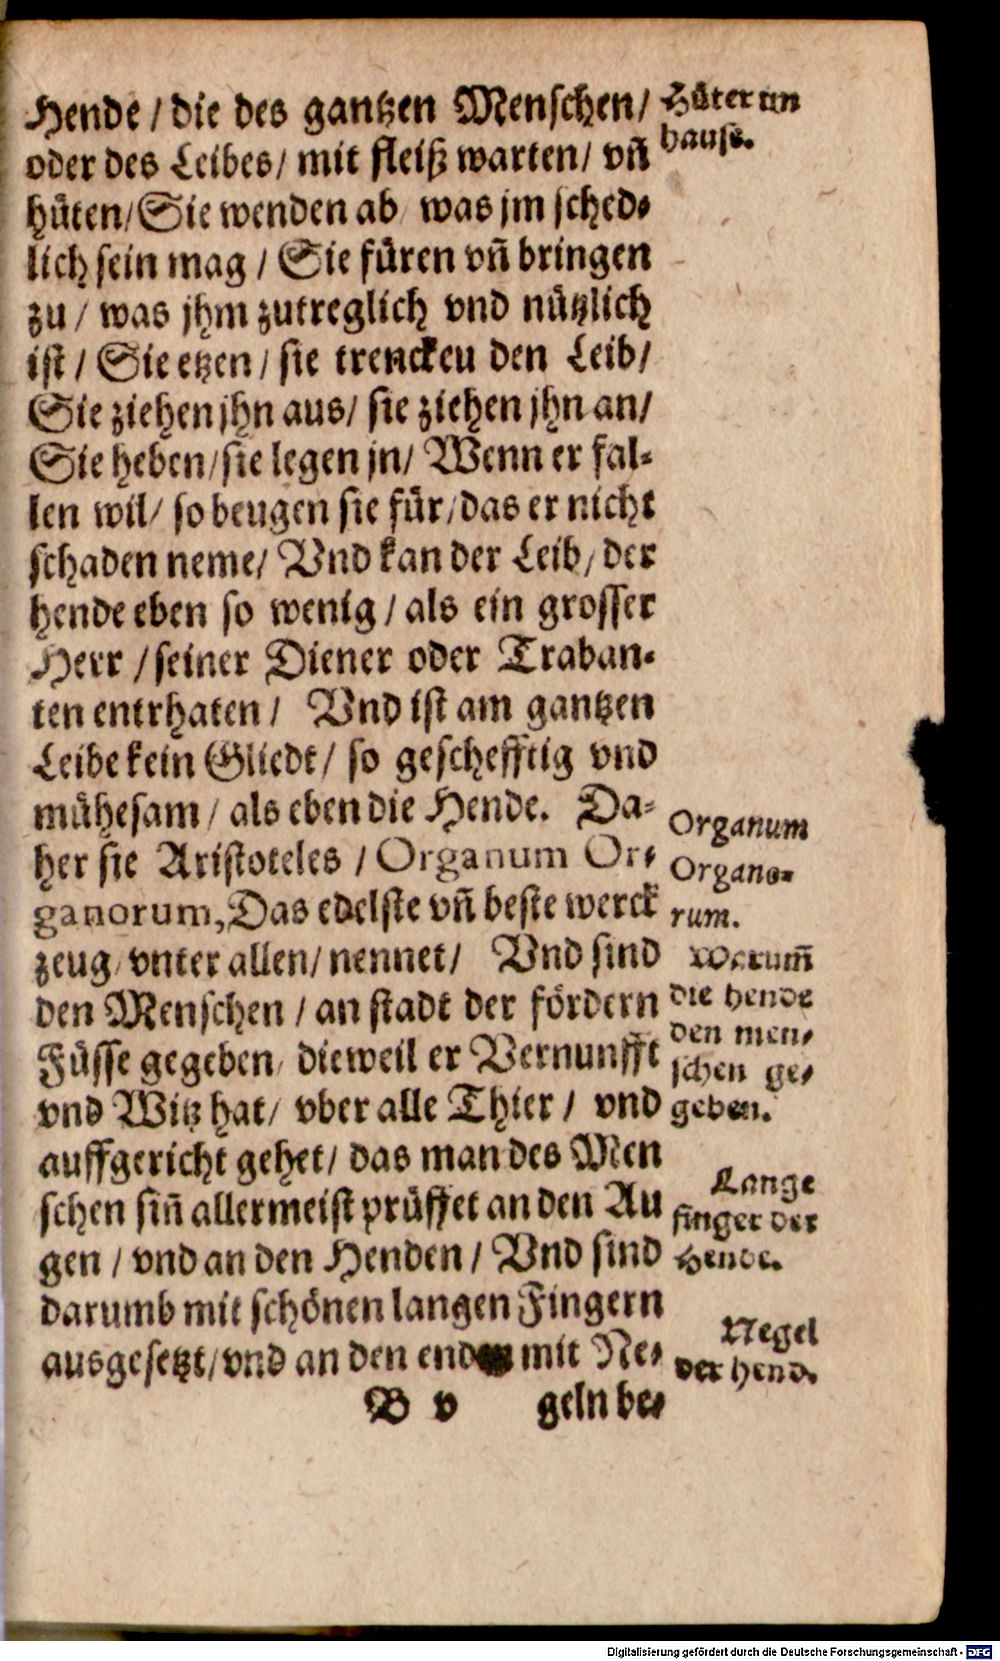 Hende / die des gantzen Menschen /
oder des Leibes / mit fleiß warten / vn̄
hüten / Sie wenden ab / was jm sched⸗
lich sein mag / Sie füren vn̄ bringen
zu / was jhm zutreglich vnd nützlich
ist / Sie etzen / sie trenckeu den Leib /
Sie ziehen jhn aus / sie ziehen jhn an /
Sie heben / sie legen jn / Wenn er fal⸗
len wil / so beugen sie für / das er nicht
schaden neme / Vnd kan der Leib / der
hende eben so wenig / als ein grosser
Herr / seiner Diener oder Traban⸗
ten entrhaten / Vnd ist am gantzen
Leibe kein Gliedt / so geschefftig vnd
mühesam / als eben die Hende. Da⸗
her sie Aristoteles / Organum Or⸗
ganorum, Das edelste vn̄ beste werck
zeug / vnter allen / nennet / Vnd sind
den Menschen / an stadt der fördern
Füsse gegeben / dieweil er Vernunfft
vnd Witz hat / vber alle Thier / vnd
auffgericht gehet / das man des Men
schen sin̄ allermeist prüffet an den Au
gen / vnd an den Henden / Vnd sind
darumb mit schönen langen Fingern
ausgesetzt / vnd an den enden mit Ne⸗
B v geln be⸗
Hüter im
hause.
Organum
Organo⸗
rum.
Warum̄
die hende
den men⸗
schen ge⸗
geben.
Lange
finger der
Hende.
Negel
der hend.
Digitalisierung gefördert durch die Deutsche Forschungsgemeinschaft - DFG